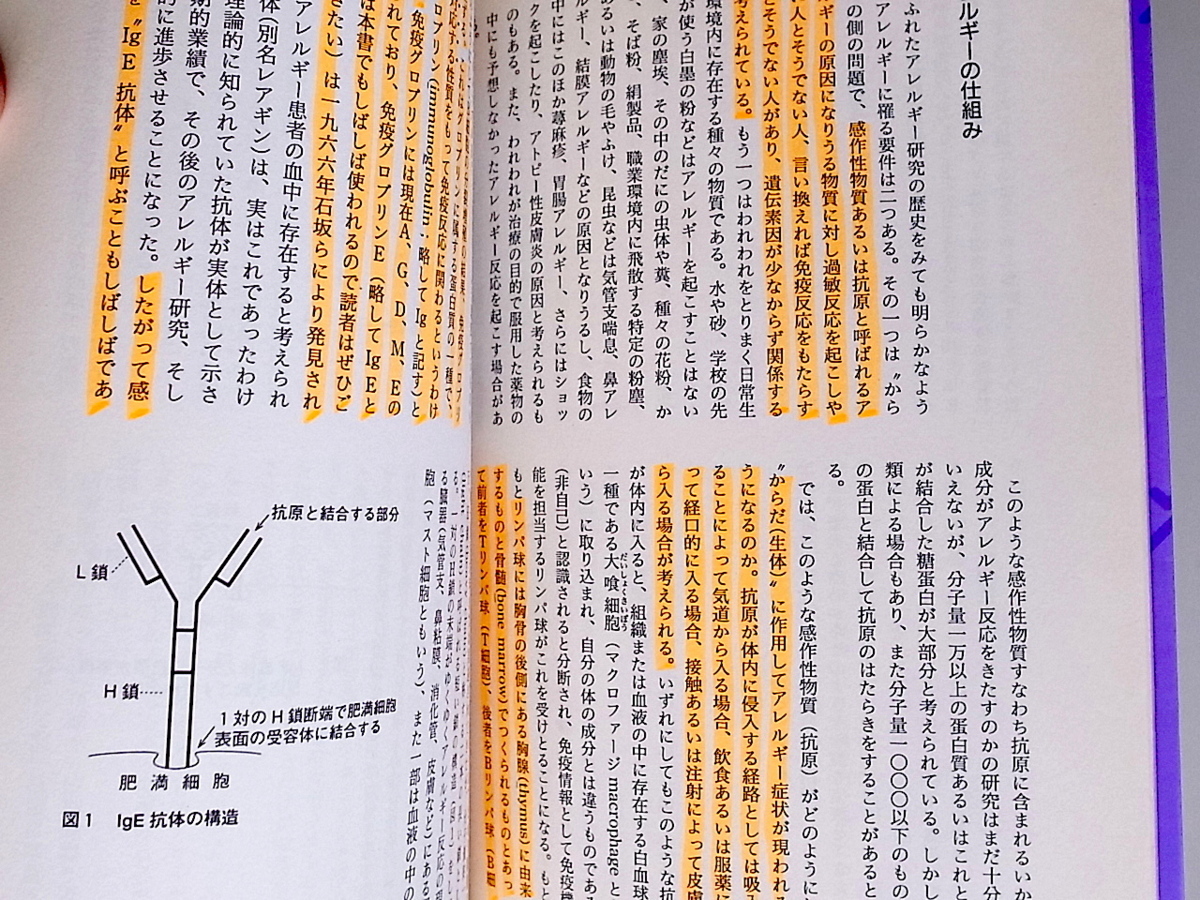 ルギーの仕組み
ふれたアレルギー研究の歴史をみても明らかなよう
アレルギーに罹る要件は二つある。その一つは〝から
の側の問題で、感作性物質あるいは抗原と呼ばれるア
ギーの原因になりうる物質に対し過敏反応を起こしや
人とそうでない人、言い換えれば免疫反応をもたらす
とそうでない人があり、遺伝素因が少なからず関係する
考えられている。もう一つはわれわれをとりまく日常生
環境内に存在する種々の物質である。水や砂、学校の先
が使う白墨の粉などはアレルギーを起こすことはない
、家の塵埃、その中のだにの虫体や糞、種々の花粉、か
、そば粉、絹製品、職業環境内に飛散する特定の粉塵、
あるいは動物の毛やふけ、昆虫などは気管支喘息、鼻アレ
ルギー、結膜アレルギーなどの原因となりうるし、食物の
中にはこのほか蕁麻疹、胃腸アレルギー、さらにはショッ
クを起こしたり、アトピー性皮膚炎の原因と考えられるも
のもある。また、われわれが治療の目的で服用した薬物の
中にも予想しなかったアレルギー反応を起こす場合があ
る。
このような感作性物質すなわち抗原に含まれるいか
成分がアレルギー反応をきたすのかの研究はまだ十分
いえないが、分子量一万以上の蛋白質あるいはこれと
が結合した糖蛋白が大部分と考えられている。しかし
類による場合もあり、また分子量一〇〇〇以下のもの
の蛋白と結合して抗原のはたらきをすることがあると
る。
では、このような感作性物質（抗原）がどのように
〝からだ（生体）〟に作用してアレルギー症状が現われる
うになるのか。抗原が体内に侵入する経路としては吸入
ることによって気道から入る場合、飲食あるいは服薬に
って経口的に入る場合、接触あるいは注射によって皮膚
ら入る場合が考えられる。いずれにしてもこのような抗
が体内に入ると、組織または血液の中に存在する白血球
一種である大喰細胞（マクロファージmacrophageと
だいしょくさいぼう
いう）に取り込まれ、自分の体の成分とは違うものであ
（非自己）と認識されると分断され、免疫情報として免疫
能を担当するリンパ球がこれを受けとることになる。もと
もとリンパ球には胸骨の後側にある胸腺(thymus)に由来
するものと骨髄(bone marrow)でつくられるものとあっ
て前者をTリンパ球（T細胞）、後者をBリンパ球（B細
応する性質をもって免疫反応に関わるというわけ
免疫グロブリン(immunoglobulin：略してIgと記す)と
れており、免疫グロブリンには現在A、G、D、M、Eの
免疫グロブリンE（略してIgEと
は本書でもしばしば使われるので読者はぜひご
きたい）は一九六六年石坂らにより発見され
アレルギー患者の血中に存在すると考えられ
体（別名レアギン）は、実はこれであったわけ
理論的に知られていた抗体が実体として示さ
期的業績で、その後のアレルギー研究、そし
的に進歩させることになった。したがって感
を〝IgE抗体〟と呼ぶこともしばしばであ
る臓器（気管支、鼻粘膜、消化管、皮膚など）にある
胞（マスト細胞ともいう）、また一部は血液の中の
抗原と結合する部分
L鎖
H鎖
1対のH鎖断端で肥満細胞
表面の受容体に結合する
肥満細胞
図1 IgE抗体の構造